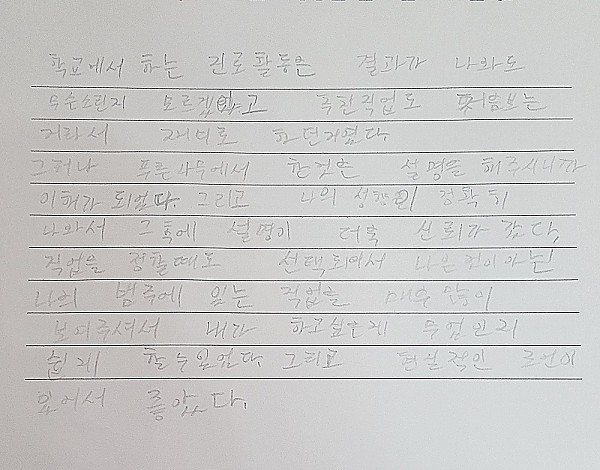 학교에서 하는 진로활동은 결과가 나와도
무슨소린지 모르겠았고 추천직업도 처음보는
거라서 재미로 하던거였다.
그러나 푸른나무에서 한것은 설명을 해주시니까
이해가 되었다. 그리고 나의 성향이 정확히
나와서 그 후에 설명이 더욱 신뢰가 갔다.
직업을 정할때도 선택되어서 나온것이아닌
나의 범주에 있는 직업을 매우 많이
보여주셔서 내가 하고싶은게 무엇인지
쉽게 할수있었다. 그리고 현실적인 조언이
있어서 좋았다.